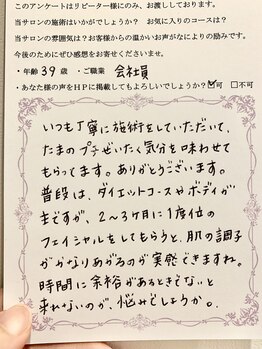 このアンケートはリピーター様にのみ、お渡ししております。
当サロンの施術はいかがでしょうか？ お気に入りのコースは？
当サロンの雰囲気は？お客様からの温かいお声がなによりの励みです。
今後のためにぜひ感想をお寄せくださいませ。
・年齢 39 歳 ・ご職業 会社員
・あなた様の声をHPに掲載してもよろしいでしょうか？ ☑可 □不可
いつも丁寧に施術をしていただいて、
たまのプチぜいたく気分を味わせて
もらってます。ありがとうございます。
普段は、ダイエットコースやボディが
主ですが、2〜3ヶ月に1度位の
フェイシャルをしてもらうと、肌の調子
がかなりあがるのが実感できますね。
時間に余裕があるときでないと
来れないのが、悩みでしょうか。